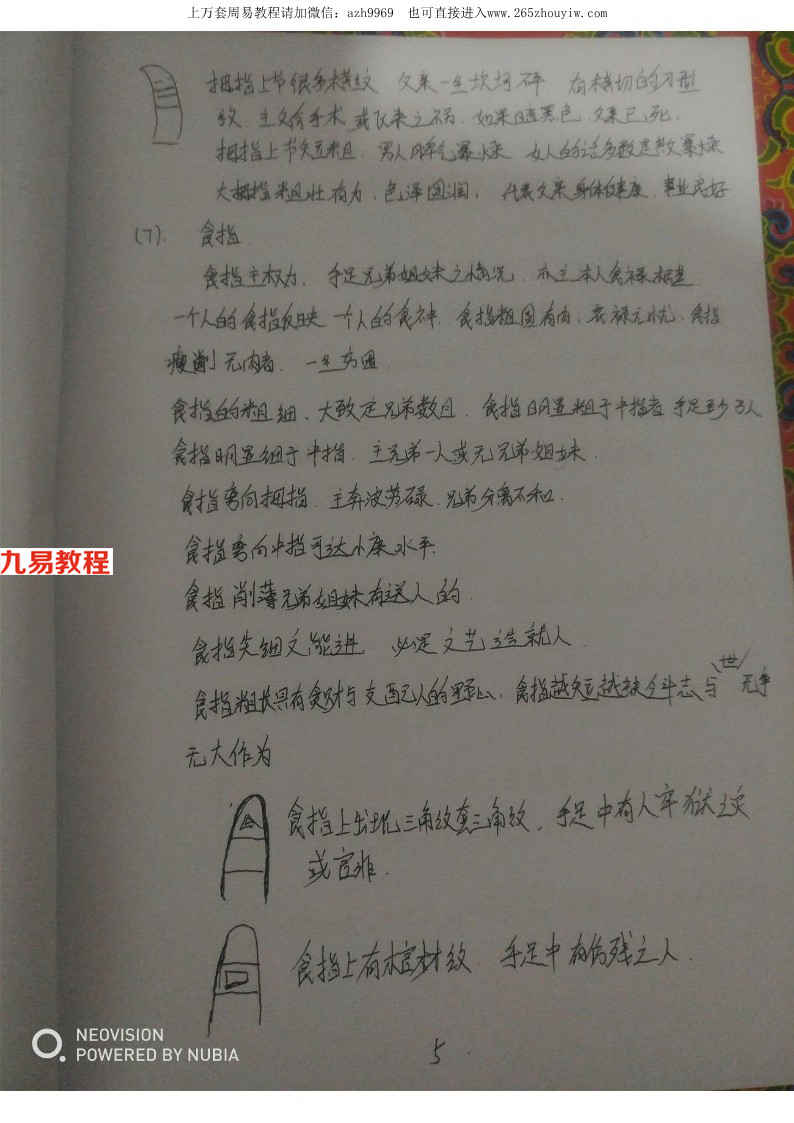 上万套周易教程请加微信：azh9969　也可直接进入www.265zhouyiw.com
拇指上节很多横纹 父亲一生坎坷 有横切的刀型
纹 主父有手术 或飞来之祸. 如果暗黑色 父亲已死.
拇指上节短粗. 男人脾气暴燥 女人的话多数是教暴燥
大拇指粗壮有力, 色泽圆润, 代表父亲身体健康. 事业良好
(7). 食指
食指主权力, 手足兄弟姐妹之情况. 亦主本人食禄
一个人的食指反映 一个人的食神. 食指粗圆有肉, 衣禄无忧, 食指
瘦削无肉者. 一生穷困
食指的粗细, 大致定兄弟数目. 食指明显粗于中指者 手足至少3人
食指明显细于中指. 主兄弟一人或无兄弟姐妹.
食指弯向拇指. 主奔波劳碌. 兄弟分离不和.
食指弯向中指可达小康水平.
食指削薄兄弟姐妹有送人的.
食指尖细又能进 必定文艺造就人
食指粗长具有贪财与支配人的野心. 食指越短越缺斗志与世无争
无大作为
食指上出现三角纹套三角纹, 手足中有人牢狱之灾
或官非.
九易教程
食指上有棺材纹 手足中有伤残之人.
NEOVISION
POWERED BY NUBIA
5